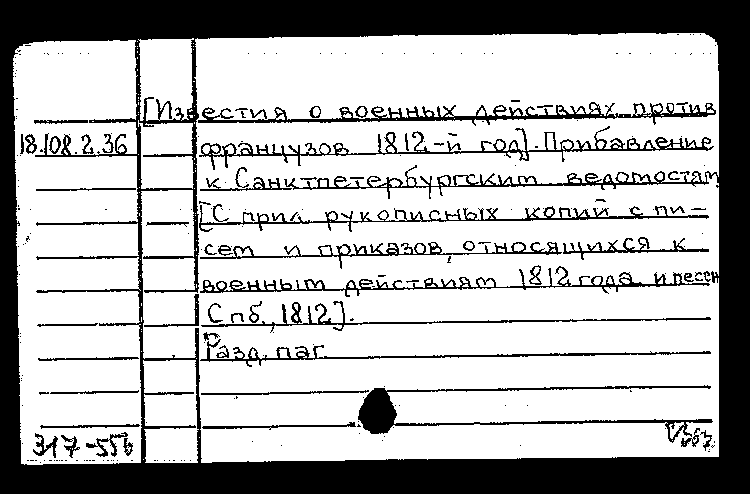 [Известия о военных действиях против
18.108.2.36 французов 1812-й год]. Прибавление
к Санктпетербургским ведомостям
[С прил. рукописных копий с пи-
сем и приказов, относящихся к
военным действиям 1812 года и песен
Спб., 1812].
Разд. паг.
317-55б